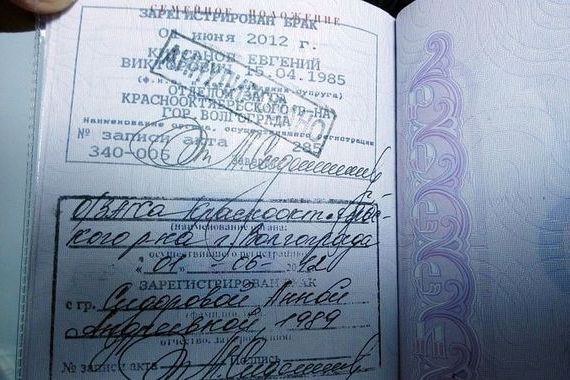 СЕМЕЙНОЕ ПОЛОЖЕНИЕ
ЗАРЕГИСТРИРОВАН БРАК
июня 2012 г.
ЕВГЕНИЙ
15.04.1985
ОТДЕЛОМ ЗАГСА
КРАСНООКТЯБРЬСКОГО Р-НА
ГОР. ВОЛГОГРАДА
Наименование органа, осуществившего регистрацию
№ записи акта 285
340-006
ОЗАГСа Краснооктябрьс-
кого р-на г. Волгограда
(наименование органа,
осуществившего регистрацию)
"01" 06
ЗАРЕГИСТРИРОВАН БРАК
с гр. Сидоровой Анной
Андреевной, 1989
отчество, дата рождения
№ записи акта Подпись